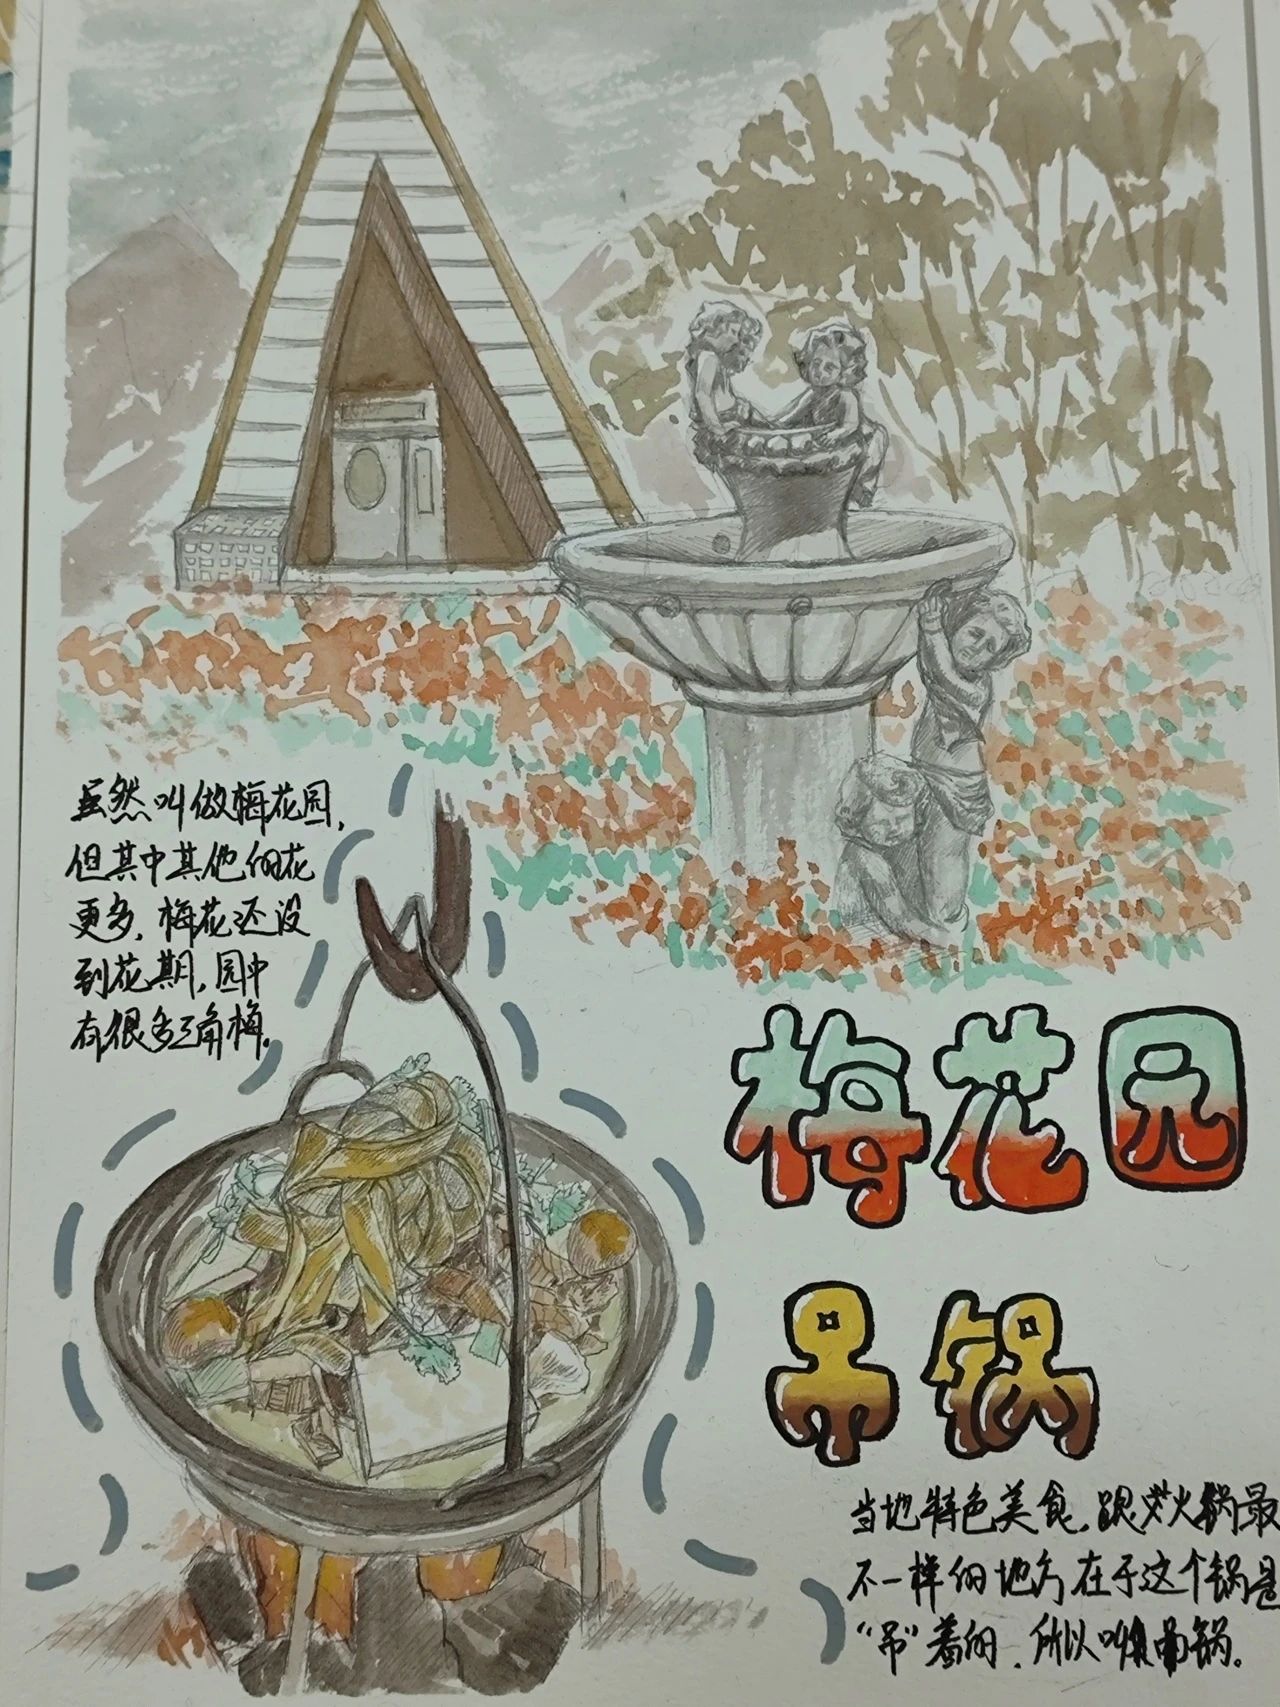 虽然叫做梅花园,
但其中其他的花
更多,梅花还没
到花期,园中
有很多三角梅。
梅花园
吊锅
当地特色美食,跟火锅最
不一样的地方在于这个锅是
“吊”着的,所以叫做吊锅。